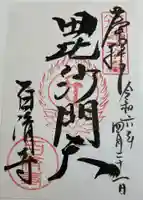 奉拝
令和六年四月二十一日
毘沙門天
百済寺